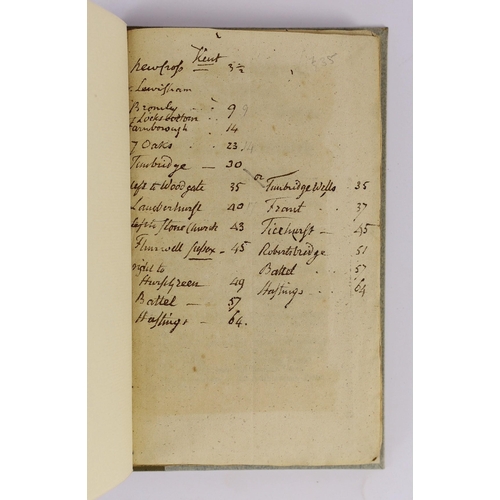 Kent
Newcross 3½
Lewisham
Bromley 9
Locksbottom
Farnborough 14
7 Oaks 23
Tunbridge — 30
left to Woodgate 35
Lamberhurst 40
left to Stone Crouch 43
Flimwell Sussex — 45
right to
Hurst Green 49
Battel — 57
Hastings — 64
or
Tunbridge Wells 35
Frant 37
Ticehurst — 45
Robertsbridge 51
Battel 57
Hastings 64